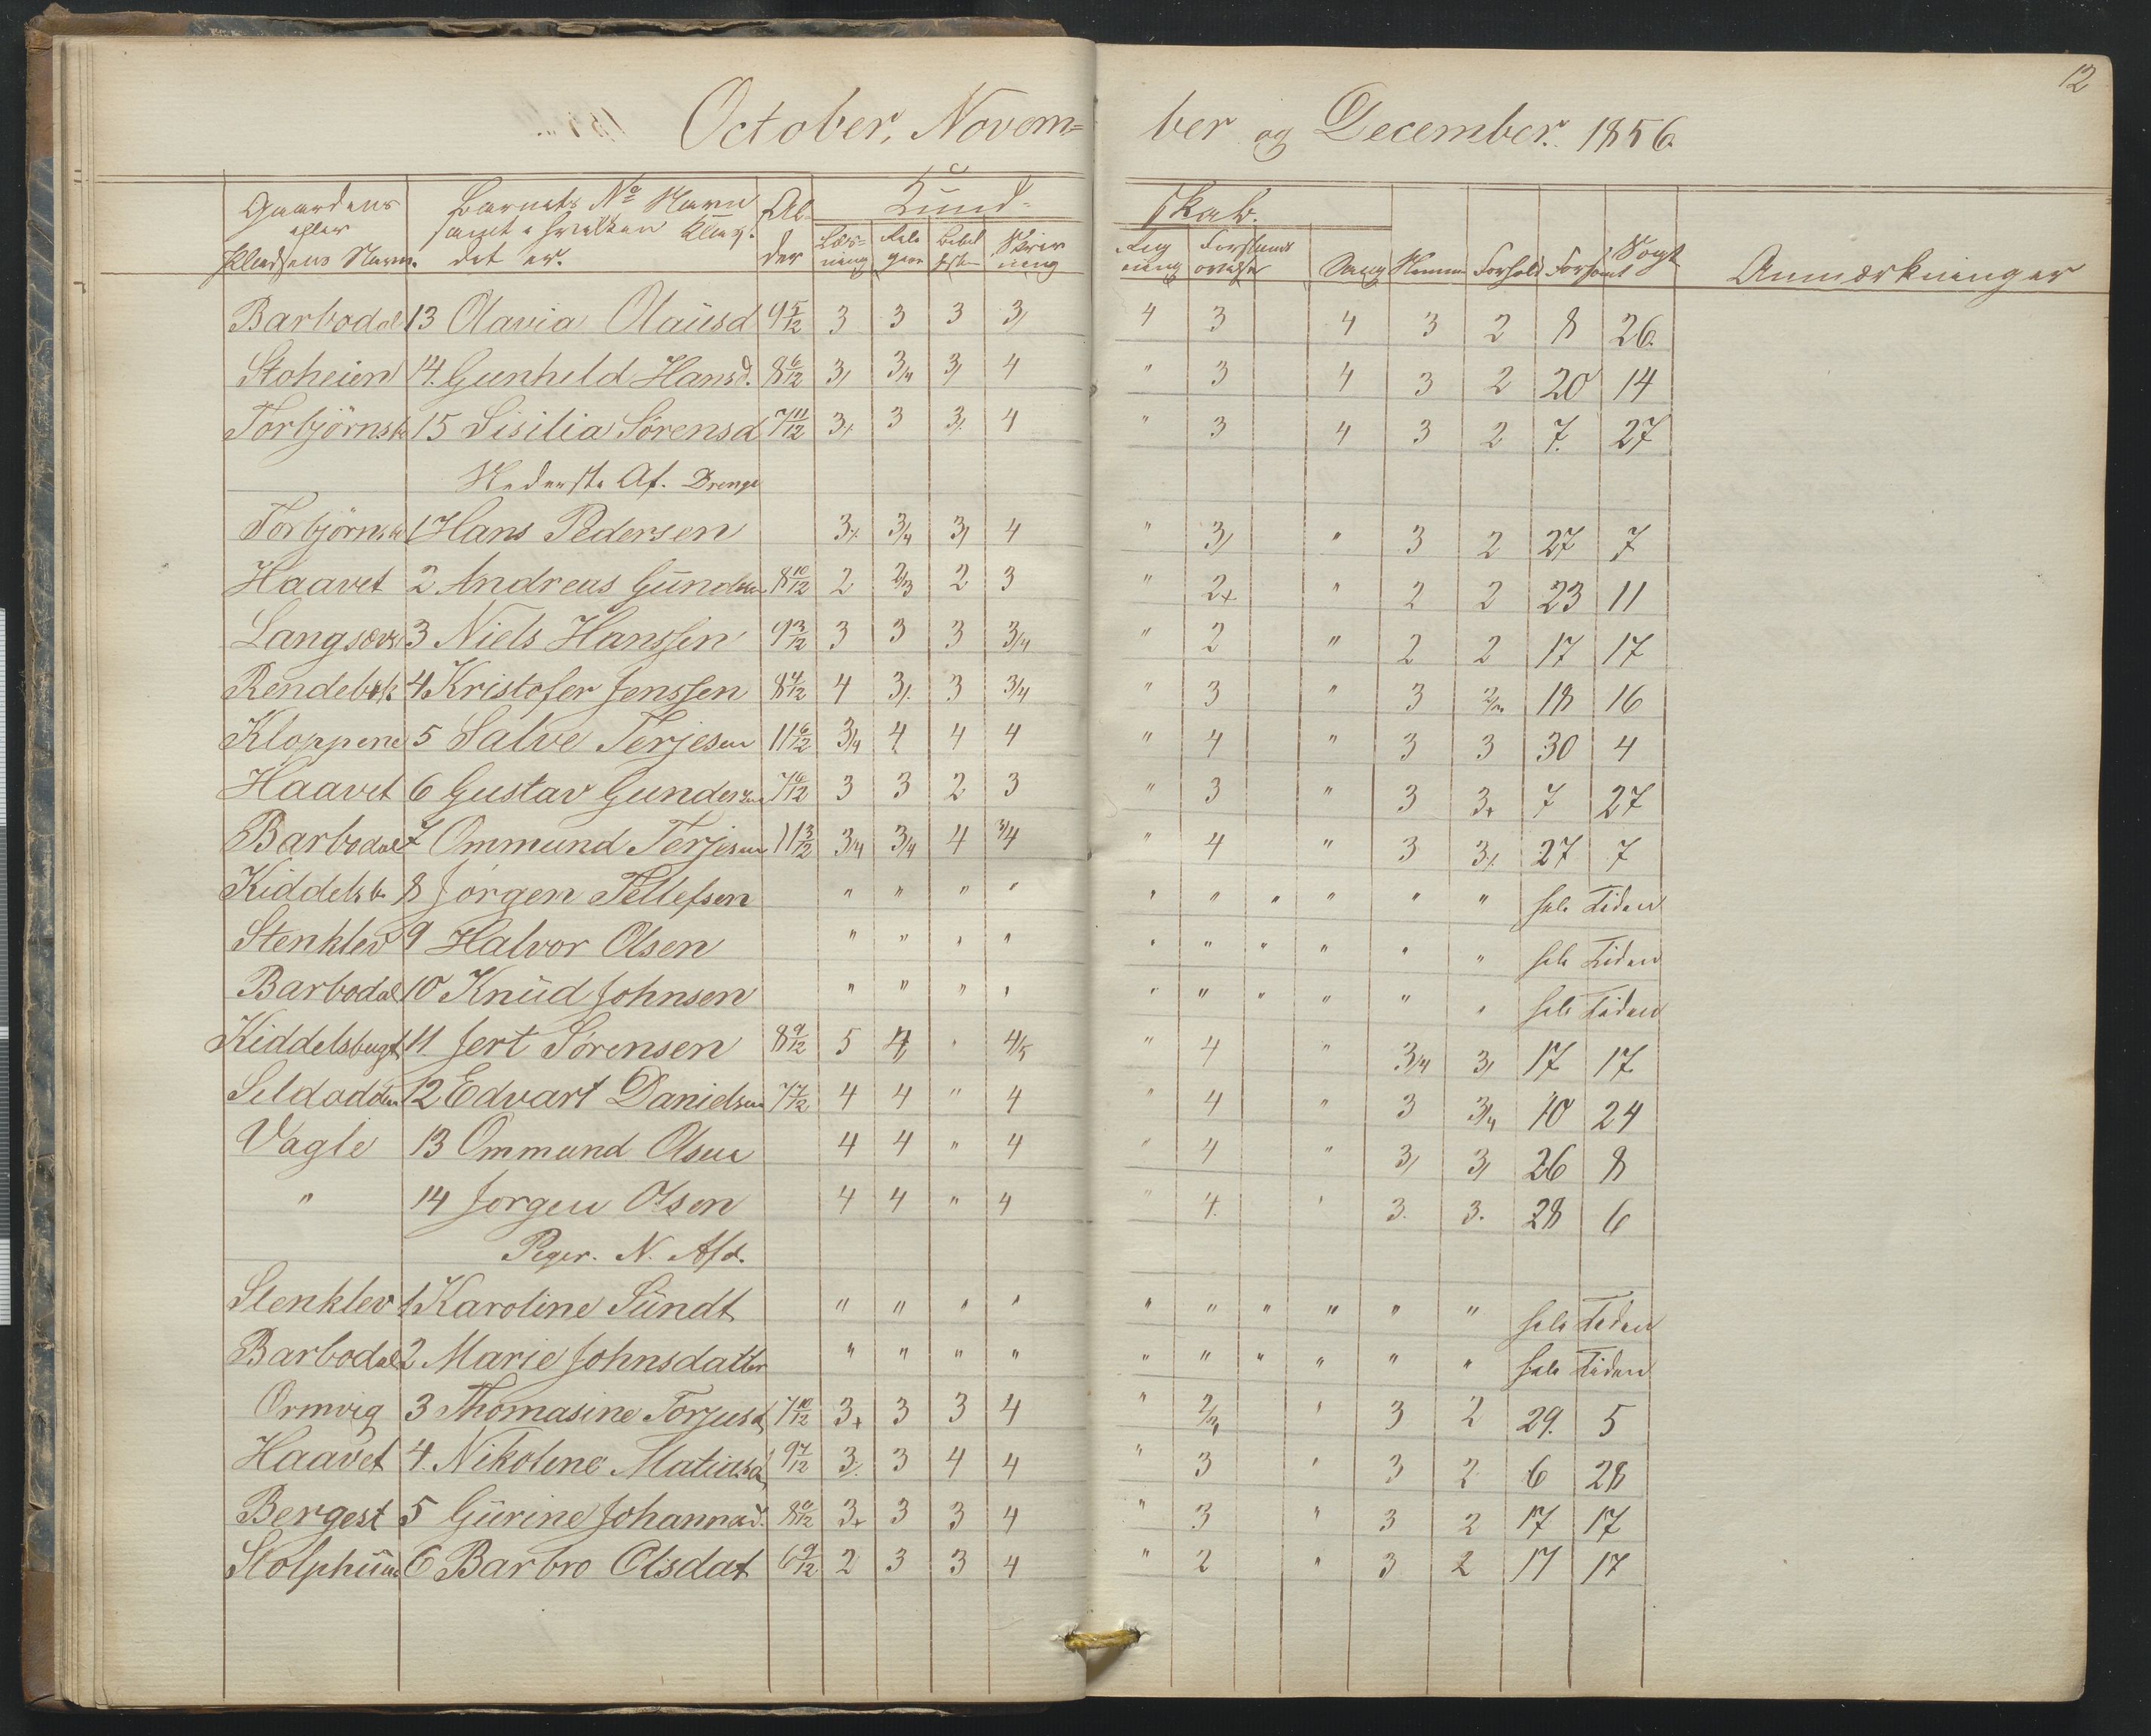 12
October, Novem= ber og December. 1856.
Gaardens eller Pladsens Navn. Barnets No Navn samt i hvilken Klasse det er. Al- der Kund- skab.
Læs- ning Reli gion Bibel hist Skriv ning Reg ning Forstands øvelser Sang Nemme Forhold Forsømt Søgt Anmærkninger
Barbodal 13 Olavia Olausd 9 5/12 3 3 3 3/ 4 3 4 3 2 8 26.
Stoheien 14. Gunhild Hansd. 8 6/12 3/ 3/4 3/ 4 " 3 4 3 2 20 14
Torbjörnsb 15 Sisilia Sörensd 7 11/12 3/. 3 3/. 4 " 3 4 3 2 7. 27
Nederste Af. Drenge
Torbjörnsb 1 Hans Pedersen 3/. 3/4 3/ 4 " 3/ " 3 2 27 7
Haavet 2 Andreas Gundersen 8 10/12 2 2/3 2 3 " 2+ " 2 2 23 11
Langsæv 3 Niels Hanssen 9 3/12 3 3 3 3/4 " 2 " 2 2 17 17
Rendeb 4 Kristofer Jenssen 8 4/12 4 3/. 3 3/4 " 3 " 3 2/3 18 16
Kloppene 5 Salve Terjesen 11 6/12 3/4 4 4 4 " 4 " 3 3 30 4
Haavet 6 Gustav Gundersen 7 6/12 3 3 2 3 " 3 " 3 3+ 7 27
Barbodal 7 Ommund Terjesen 11 3/12 3/4 3/4 4 3/4 " 4 " 3 3/. 27 7
Kiddelsb. 8 Jörgen Tellefsen " " " " " " " " " " hele Tiden
Stenklev 9 Halvor Olsen " " " " " " " " " " hele Tiden
Barbodal 10 Knud Johnsen " " " " " " " " " " hele Tiden
Kiddelsbugt 11. Jert Sörensen 8 9/12 5 4 " 4/5 " 4 " 3/4 3/ 17 17
Sildodden 12 Edvart Danielsen 7 7/12 4 4 " 4 " 4 " 3 3/4 10 24
Vagle 13 Ommund Olsen 4 4 " 4 " 4 " 3/ 3/ 26 8
" 14 Jörgen Olsen 4 4 " 4 " 4. " 3. 3. 28 6
Piger. N. Afd.
Stenklev 1 Karoline Sundt " " " " " " " " " " hele Tiden
Barbodal 2 Marie Johnsdatter " " " " " " " " " " hele Tiden
Ormvig 3 Thomasine Torjusd 7 10/12 3+ 3 3 4 " 2/3 " 3 2 29. 5
Haavet 4. Nikoline Matiasd 9 7/12 3/. 3 4 4 " 3 " 3 2 6 28
Bergest 5 Gurine Johannad. 8 6/12 3+ 3 3 4 " 3 " 3 2 17 17
Stolphuun 6 Barbro Olsdat 6 9/12 2 3 3 4 " 2 " 3 2 17 17